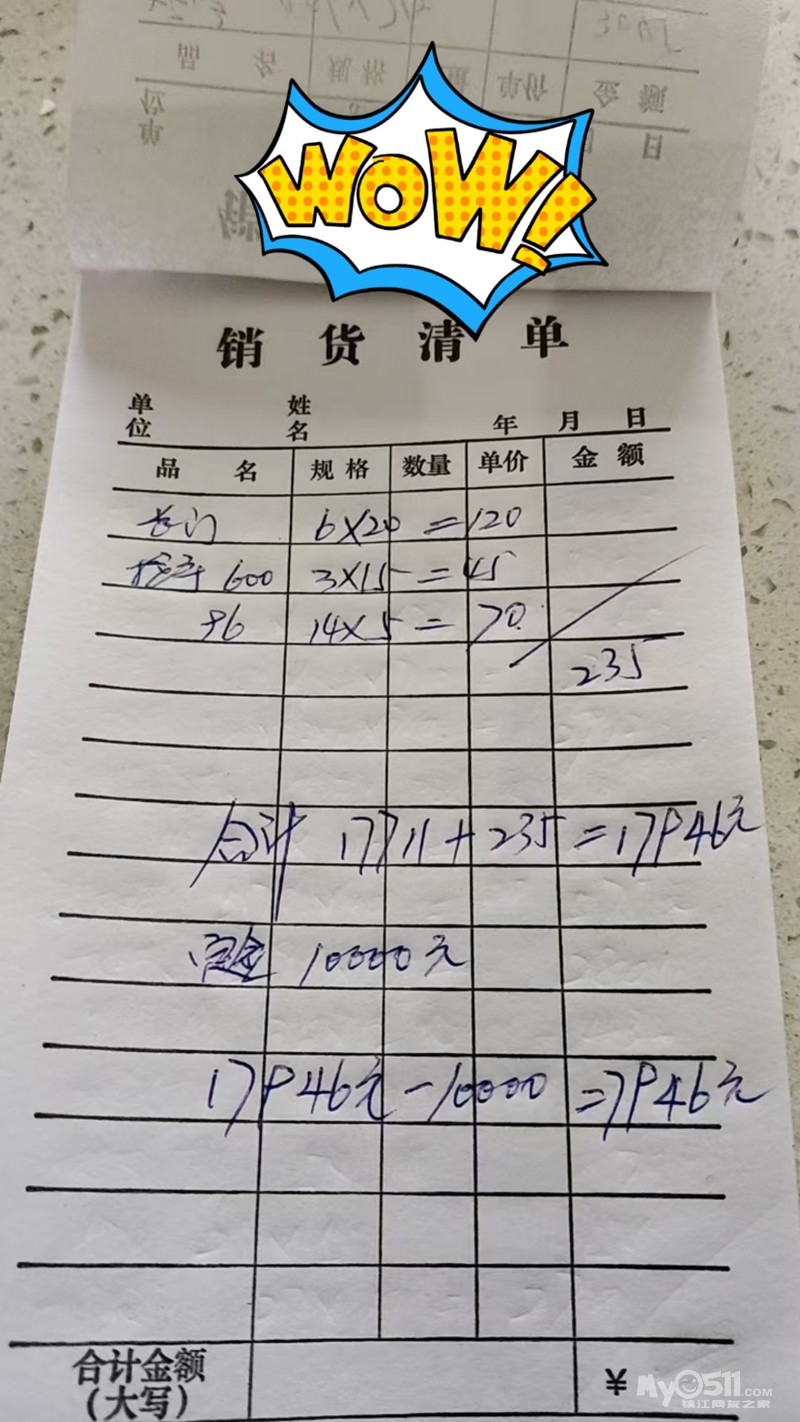 单价
金额
品名
规格
单位
日
WOW!
销货清单
单位 姓名 年 月 日
品名 规格 数量 单价 金额
长门 6×20 =120
拾手 600 3×15 =45
96 14×5 = 70
235
合计 17711+235=17946元
定金 10000元
17946元-10000=7946元
合计金额
(大写) ¥
MyO511.COM
镇江网友之家